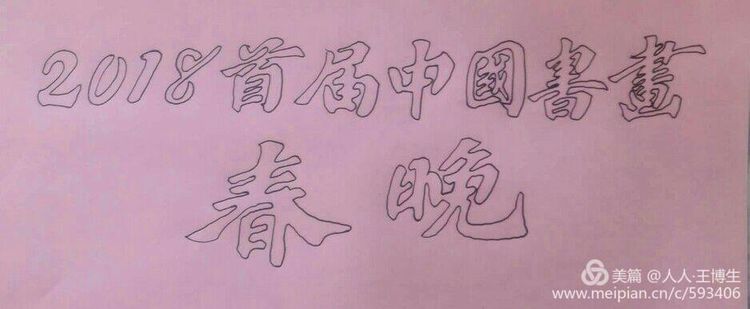 2018首届中國書畫
春晚
美篇 @人人·王博生
www.meipian.cn/c/593406